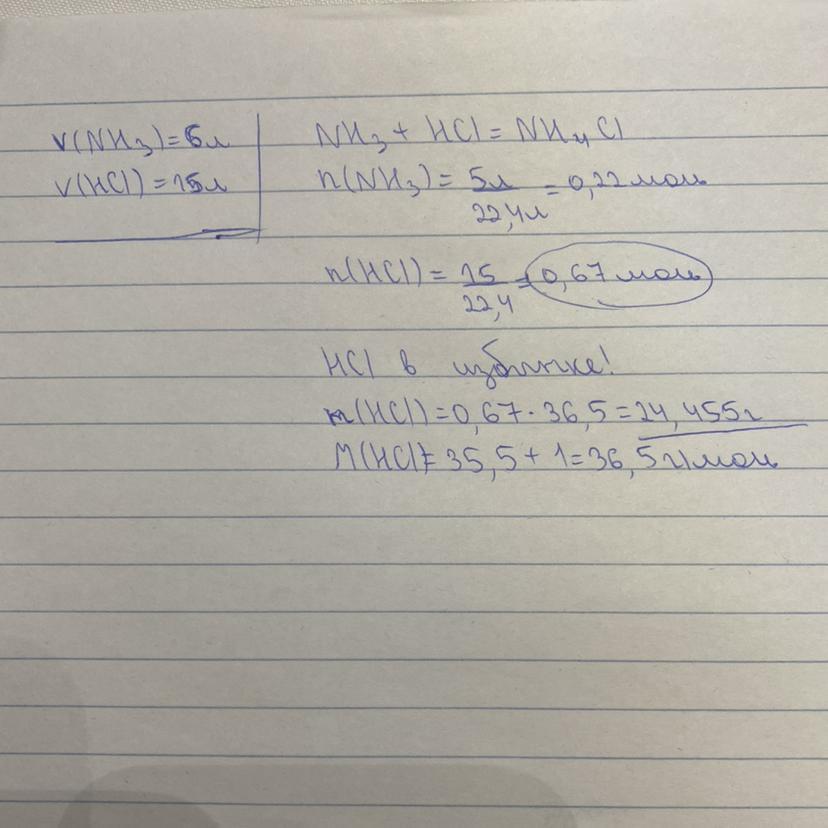 V(NH3)=5л
V(HCl)=15л
NH3 + HCl = NH4Cl
n(NH3) = 5л / 22,4л = 0,22 моль
n(HCl) = 15 / 22,4 = 0,67 моль
HCl в избытке!
m(HCl)=0,67·36,5=24,455г
M(HCl)=35,5+1=36,5г/моль